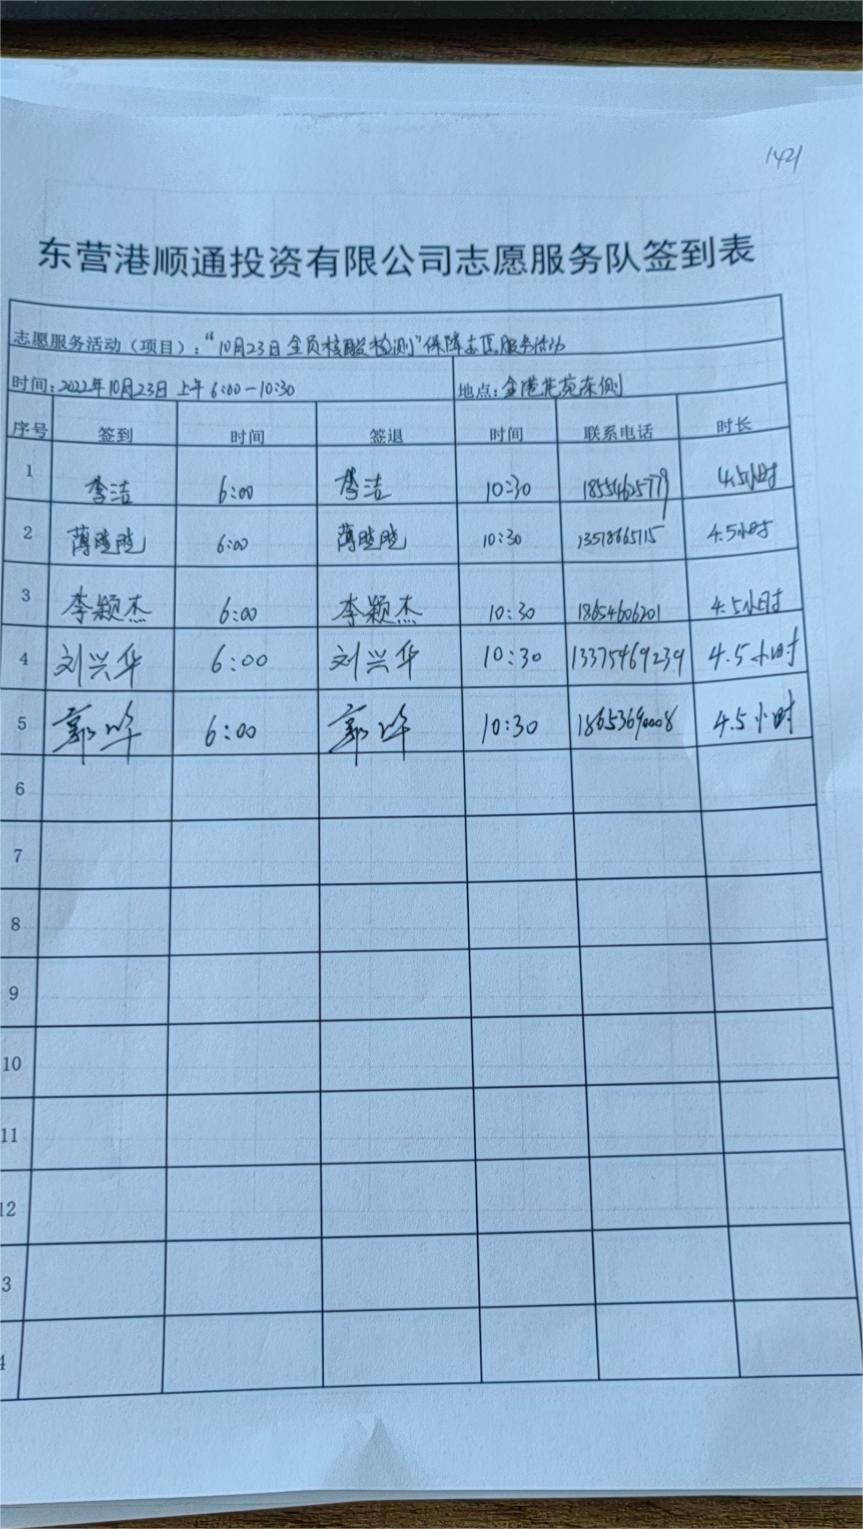 1421
东营港顺通投资有限公司志愿服务队签到表
志愿服务活动（项目）：“10月23日全员核酸检测”保障志愿服务活动
时间：2022年10月23日上午6:00-10:30 地点：金港花苑东侧
序号 签到 时间 签退 时间 联系电话 时长
1 李洁 6:00 李洁 10:30 18554625779 4.5小时
2 薄晓晓 6:00 薄晓晓 10:30 4.5小时
3 李颖杰 6:00 李颖杰 10:30 18654606201 4.5小时
4 刘兴华 6:00 刘兴华 10:30 13375469239 4.5小时
5 郭晔 6:00 郭晔 10:30 18653690008 4.5小时
6
7
8
9
10
11
12
3
4